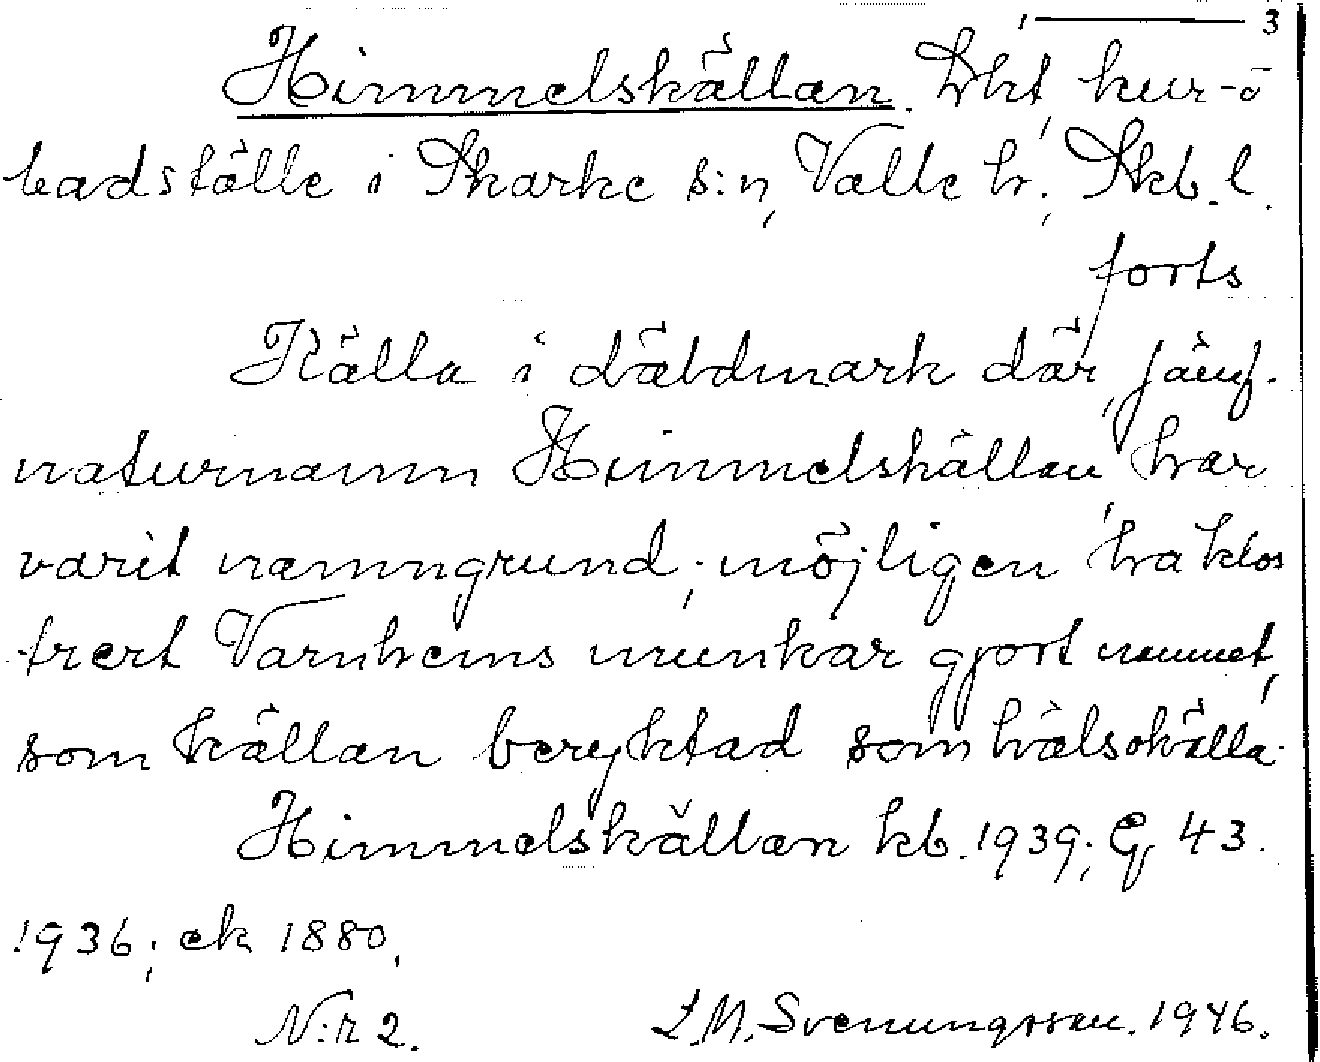 3
Himmelskällan. lht, kur- o
badställe i Skarke s:n, Valle h., Skb. l.
forts
Källa i dåldmark där, jämf.
naturnamn Himmelskällan har
varit namngrund; möjligen ha klos
trert Varnhems munkar gjort namnet,
som källan beryktad som hälsokälla.
Himmelskällan kb. 1939; G, 43.
1936; ek 1880.
N:r 2. L.M. Svenungsson. 1946.